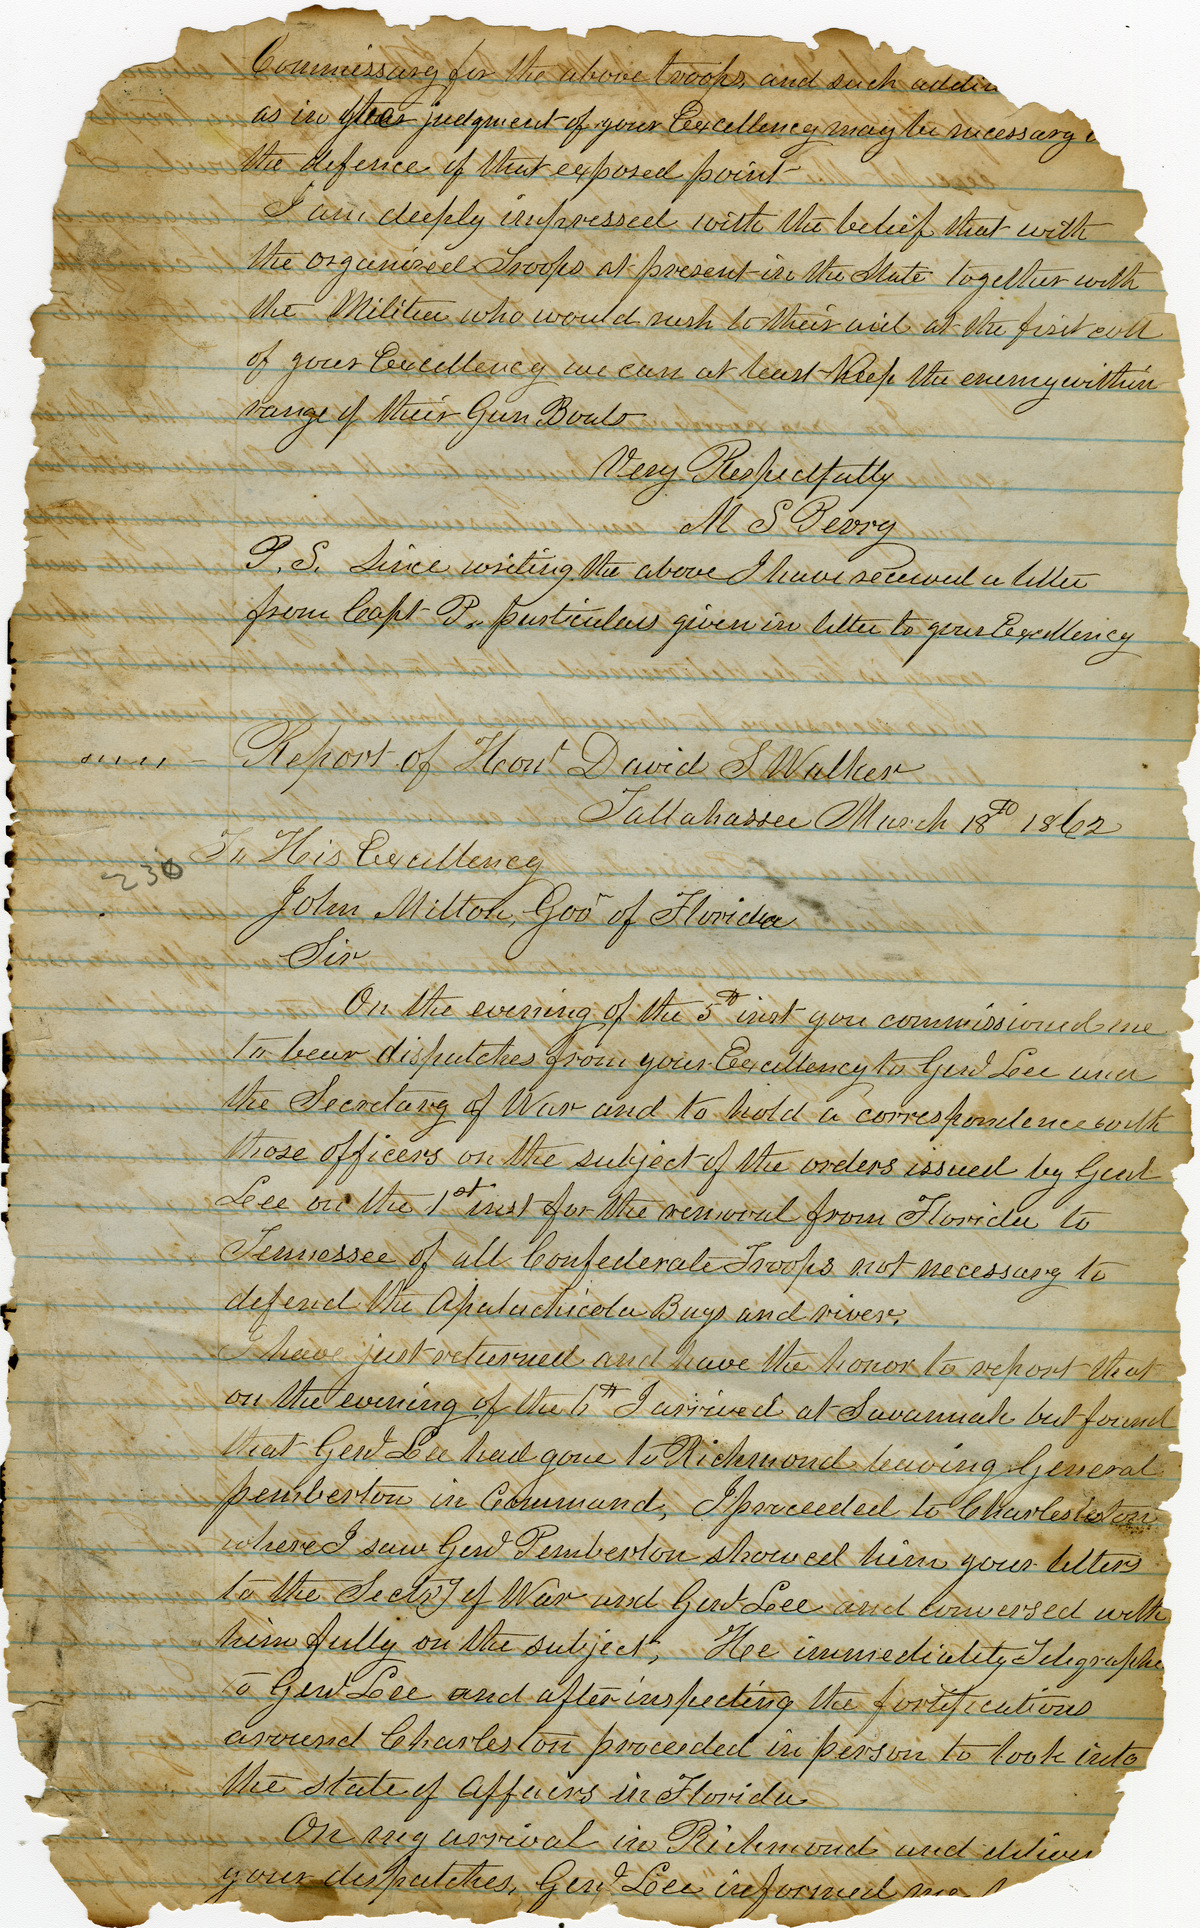 Commissary for the above troops, and such addi
as in the judgment of your Excellency may be necessary
the defence of that exposed point
I am deeply impressed with the belief that with
the organized Troops at present in the State together with
the Militia who would rush to their aid at the first call
of your Excellency we can at least Keep the enemy within
range of their Gun Boats
Very Respectfully
M S Perry
P. S. Since writing the above I have received a letter
from Capt P., particulars given in letter to your Excellency
" " " " - Report of Honl David S Walker
Tallahassee March 18th 1862
To His Excellency
230
John Milton, Govr of Florida
Sir
On the evening of the 5th inst you commissioned me
to bear dispatches from your Excellency to Genl Lee and
the Secretary of War and to hold a correspondence with
those officers on the subject of the orders issued by Genl
Lee on the 1st inst for the removal from Florida to
Tennessee of all Confederate Troops not necessary to
defend the Apalachicola Bays and river.
I have just returned and have the honor to report that
on the evening of the 6th I arrived at Savannah but found
that Genl Lee had gone to Richmond leaving General
pemberton in Command, I proceeded to Charleston
where I saw Genl Pemberton showed him your letters
to the Secty of War and Genl Lee and conversed with
him fully on the subject, He immediately Telegraphe
to Genl Lee and after inspecting the fortifications
around Charleston proceeded in person to look into
the state of Affairs in Florida
On my arrival in Richmond and deliver
your dispatches, Genl Lee informed me